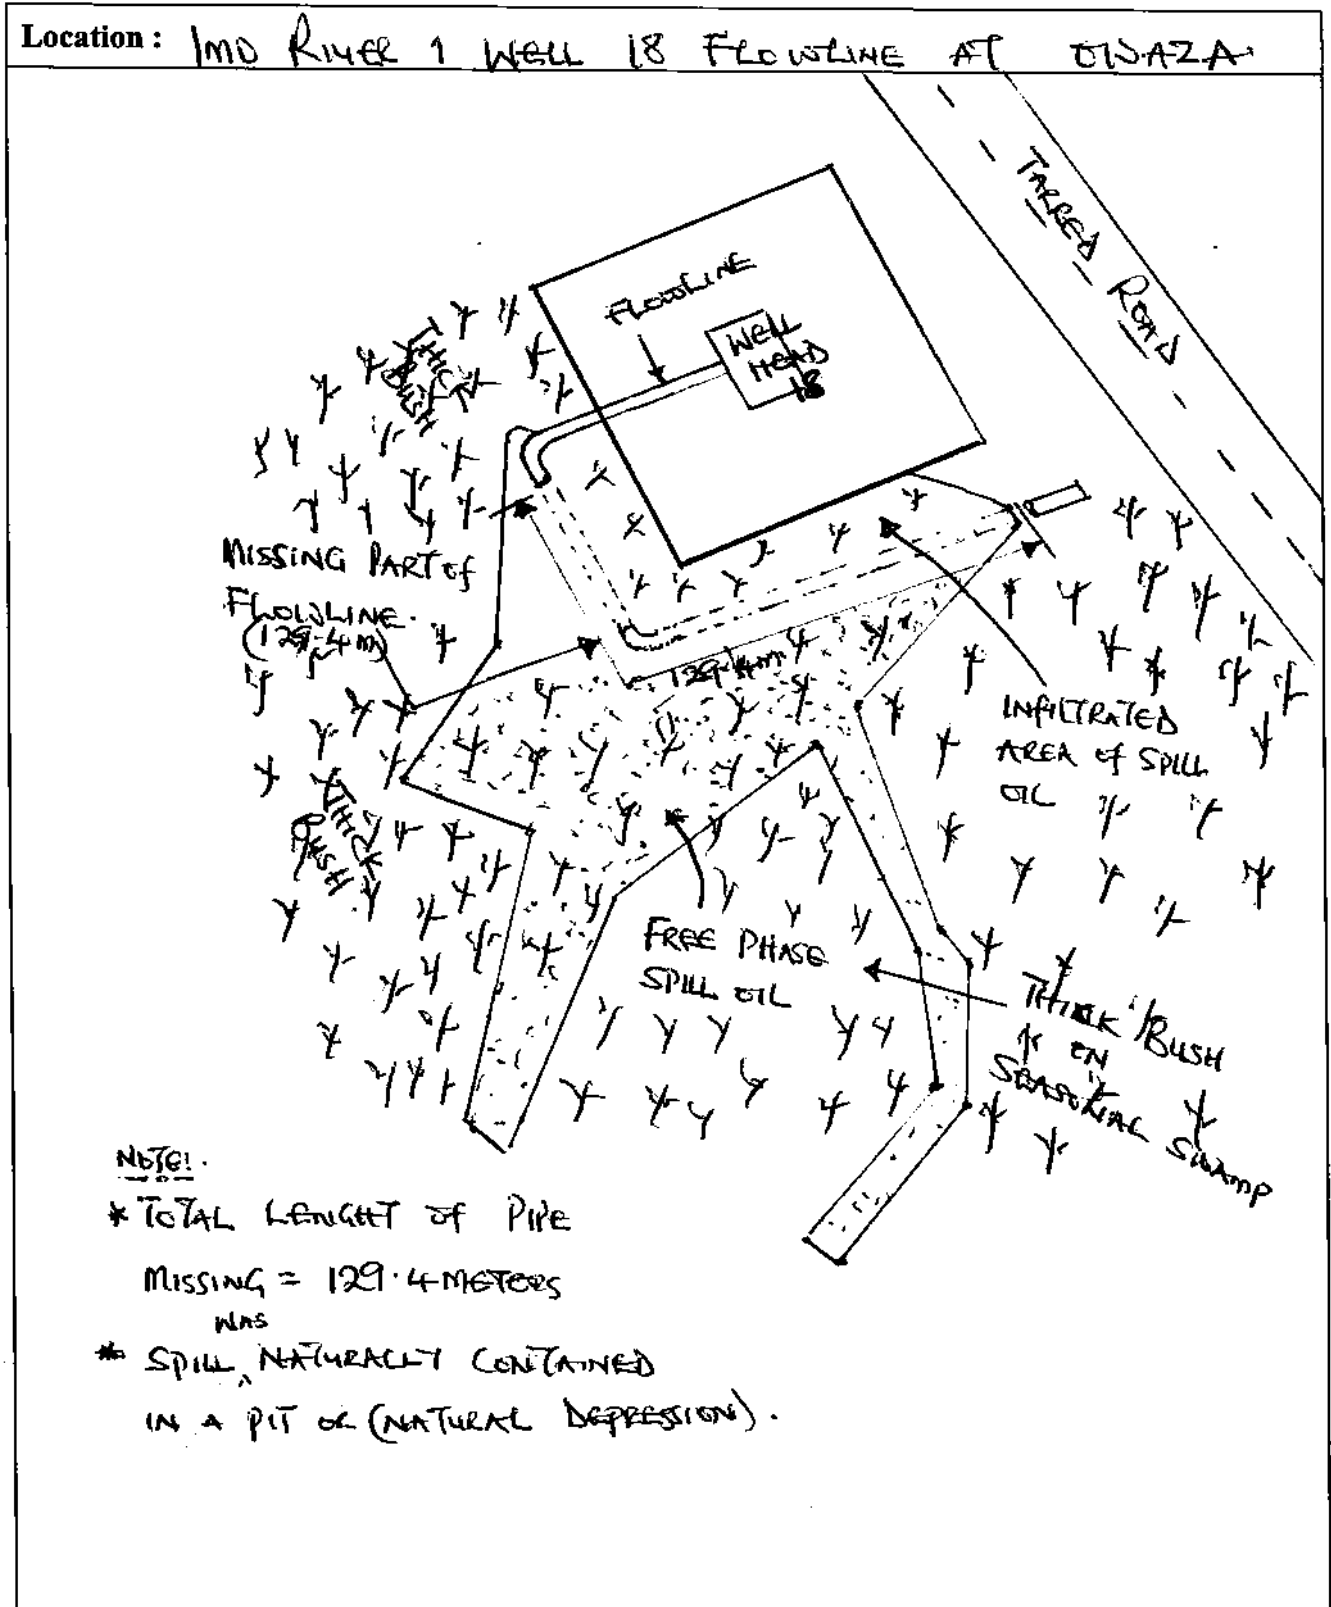 Location : IMO RIVER 1 WELL 18 FLOWLINE AT OWAZA
TARRED ROAD
FLOWLINE
WELL
HEAD
18
THICK
BUSH
MISSING PART OF
FLOWLINE.
(129.4m)
129.4m
INFILTRATED
AREA OF SPILL
OIL
THICK
BUSH
FREE PHASE
SPILL OIL
THICK BUSH
ON
SEASONAL SWAMP
NOTE!.
* TOTAL LENGHT OF PIPE
MISSING = 129.4 METERS
WAS
* SPILL, NATURALLY CONTAINED
IN A PIT OR (NATURAL DEPRESSION).